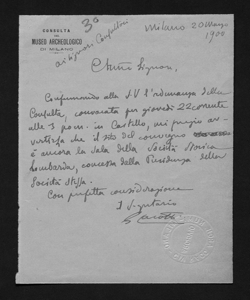 CONSULTA
DEL
MUSEO ARCHEOLOGICO
DI MILANO
3º
ai Signori Consultori
Milano 20 Marzo
1900
Chmo Signore,
Confermando alla S.V. l'adunanza della
Consulta, convocata per giovedì 22 corrente
alle 3 pom. in Castello, mi pregio av-
vertirla che il sito del convegno
è ancora la sala della Società Storica
Lombarda, concessa dalla Presidenza della
Società stessa.
Con perfetta considerazione
Il Segretario